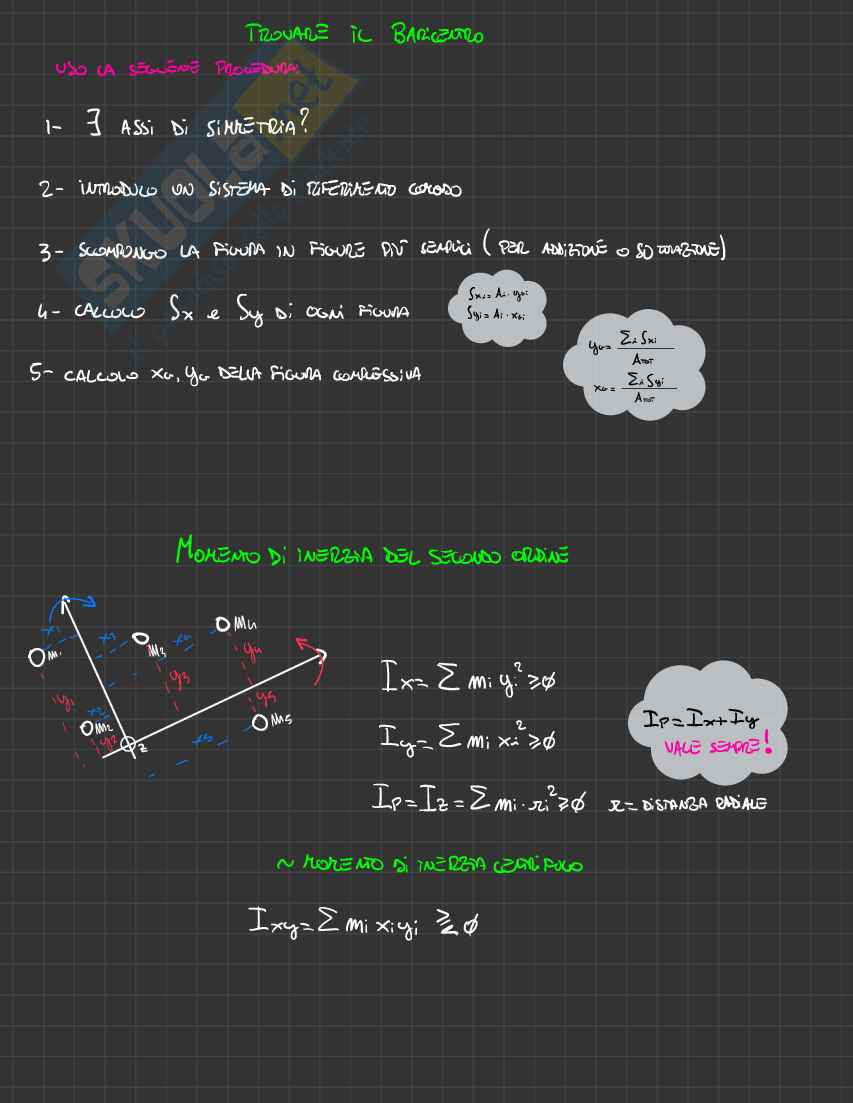 TROVARE IL BARICENTRO
USO LA SEGUENTE PROCEDURA:
1- ∃ ASSI DI SIMMETRIA?
2- INTRODUCO UN SISTEMA DI RIFERIMENTO COMODO
3- SCOMPONGO LA FIGURA IN FIGURE PIÙ SEMPLICI (PER ADDIZIONE O SOTTRAZIONE)
4- CALCOLO Sx e Sy DI OGNI FIGURA
Sxi = Ai · yGi
Syi = Ai · xGi
5- CALCOLO xG, yG DELLA FIGURA COMPLESSIVA
yG = Σi Sxi / ATOT
xG = Σi Syi / ATOT
SKUOLA.net
MOMENTO DI INERZIA DEL SECONDO ORDINE
x1 x3 x4 M4
M1 M3
y1 y3 y4
x2 M2 y2 z x5 y5 M5
Ix = Σ mi yi² ≥ ∅
Iy = Σ mi xi² ≥ ∅
Ip = Ix + Iy
VALE SEMPRE!
Ip = Iz = Σ mi · ri² ≥ ∅ r = DISTANZA RADIALE
~ MOMENTO DI INERZIA CENTRIFUGO
Ixy = Σ mi xi yi ⪌ ∅